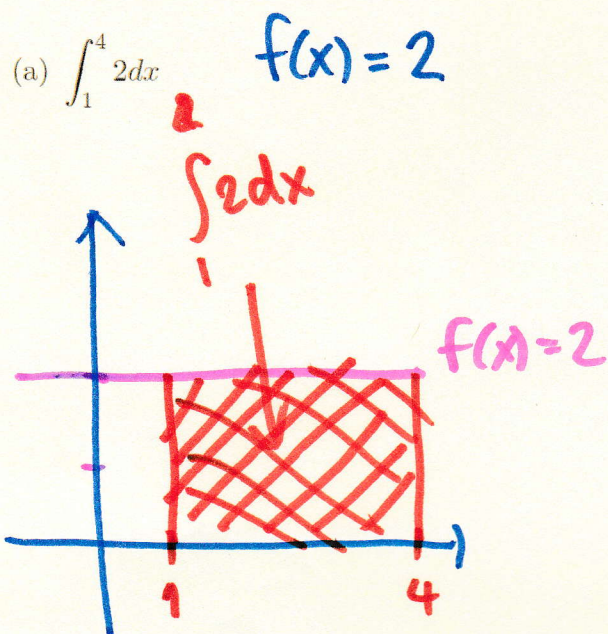 (a) ∫₁⁴ 2dx f(x) = 2
2
∫2dx
1
f(x)=2
1 4